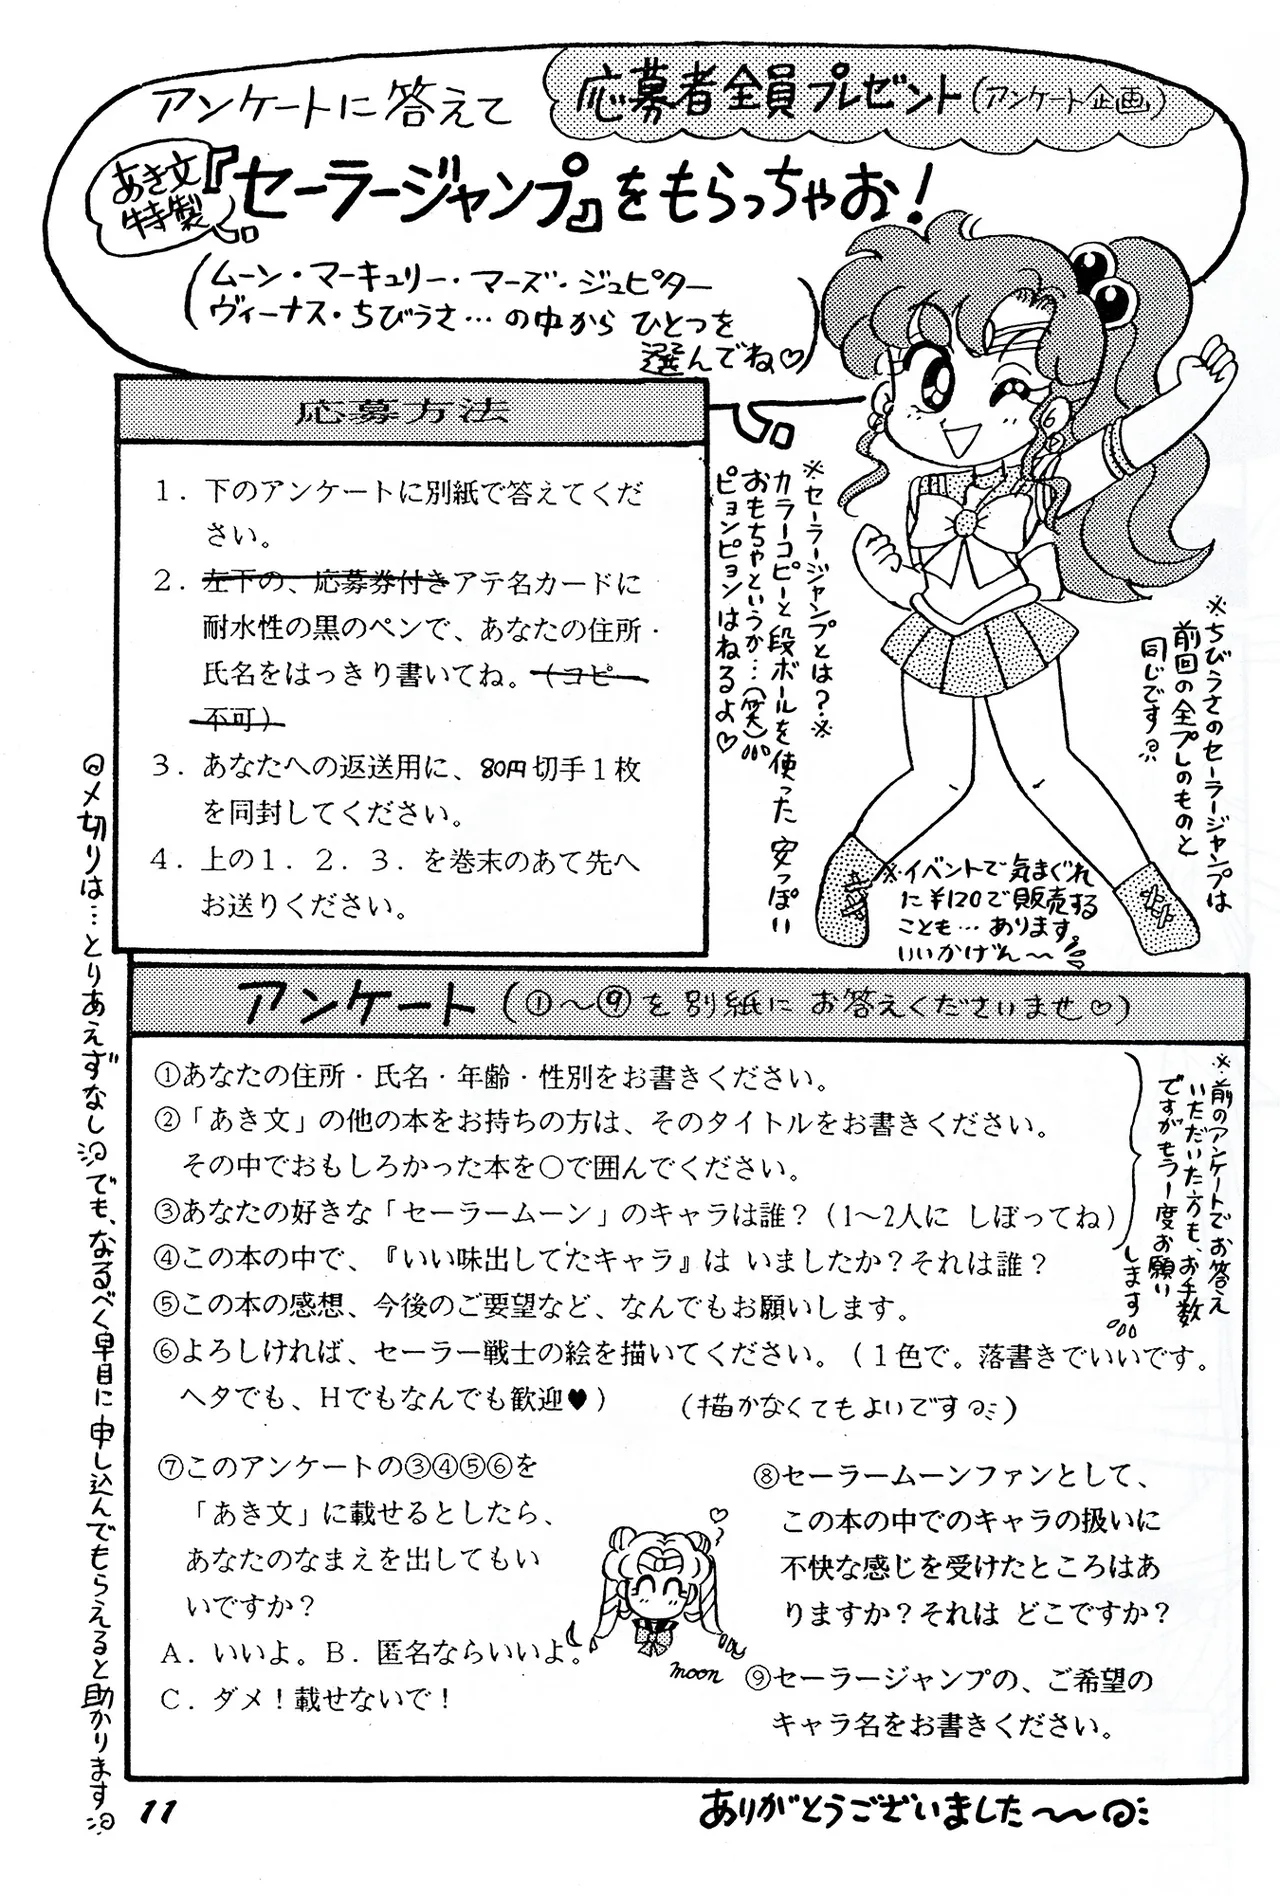 応募者全員プレゼント(アンケート企画)
アンケートに答えて
あき文
特製
『セーラージャンプ』をもらっちゃお!
(ムーン・マーキュリー・マーズ・ジュピター
ヴィーナス・ちびうさ…の中から ひとつを
選んでね♡)
応募方法
1. 下のアンケートに別紙で答えてくだ
さい。
2. 左下の、応募券付きアテ名カードに
耐水性の黒のペンで、あなたの住所・
氏名をはっきり書いてね。(コピー
不可)
3. あなたへの返送用に、80円切手1枚
を同封してください。
4. 上の1. 2. 3. を巻末のあて先へ
お送りください。
※セーラージャンプとは?※
カラーコピーと段ボールを使った 安っぽい
おもちゃというか…(笑)
ピョンピョンはねるよ♡
※ちびうさのセーラージャンプは
前回の全プレのものと
同じです
※イベントで気まぐれ
た ¥120で販売する
ことも…あります。
いいかげん〜〜
〆切りは…とりあえずなし でも、なるべく早目に申し込んでもらえると助かります
アンケート(①〜⑨を別紙にお答えくださいませ♡)
①あなたの住所・氏名・年齢・性別をお書きください。
②「あき文」の他の本をお持ちの方は、そのタイトルをお書きください。
その中でおもしろかった本を○で囲んでください。
③あなたの好きな「セーラームーン」のキャラは誰?(1〜2人に しぼってね)
④この本の中で、『いい味出してたキャラ』は いましたか?それは誰?
⑤この本の感想、今後のご要望など、なんでもお願いします。
⑥よろしければ、セーラー戦士の絵を描いてください。(1色で。落書きでいいです。
ヘタでも、Hでもなんでも歓迎♥)
(描かなくてもよいです)
※前のアンケートでお答え
いただいた方も、お手数
ですがもう一度お願い
します
⑦このアンケートの③④⑤⑥を
「あき文」に載せるとしたら、
あなたのなまえを出してもい
いですか?
A. いいよ。B. 匿名ならいいよ。
C. ダメ!載せないで!
moon
⑧セーラームーンファンとして、
この本の中でのキャラの扱いに
不快な感じを受けたところはあ
りますか?それは どこですか?
⑨セーラージャンプの、ご希望の
キャラ名をお書きください。
11
ありがとうございました〜〜